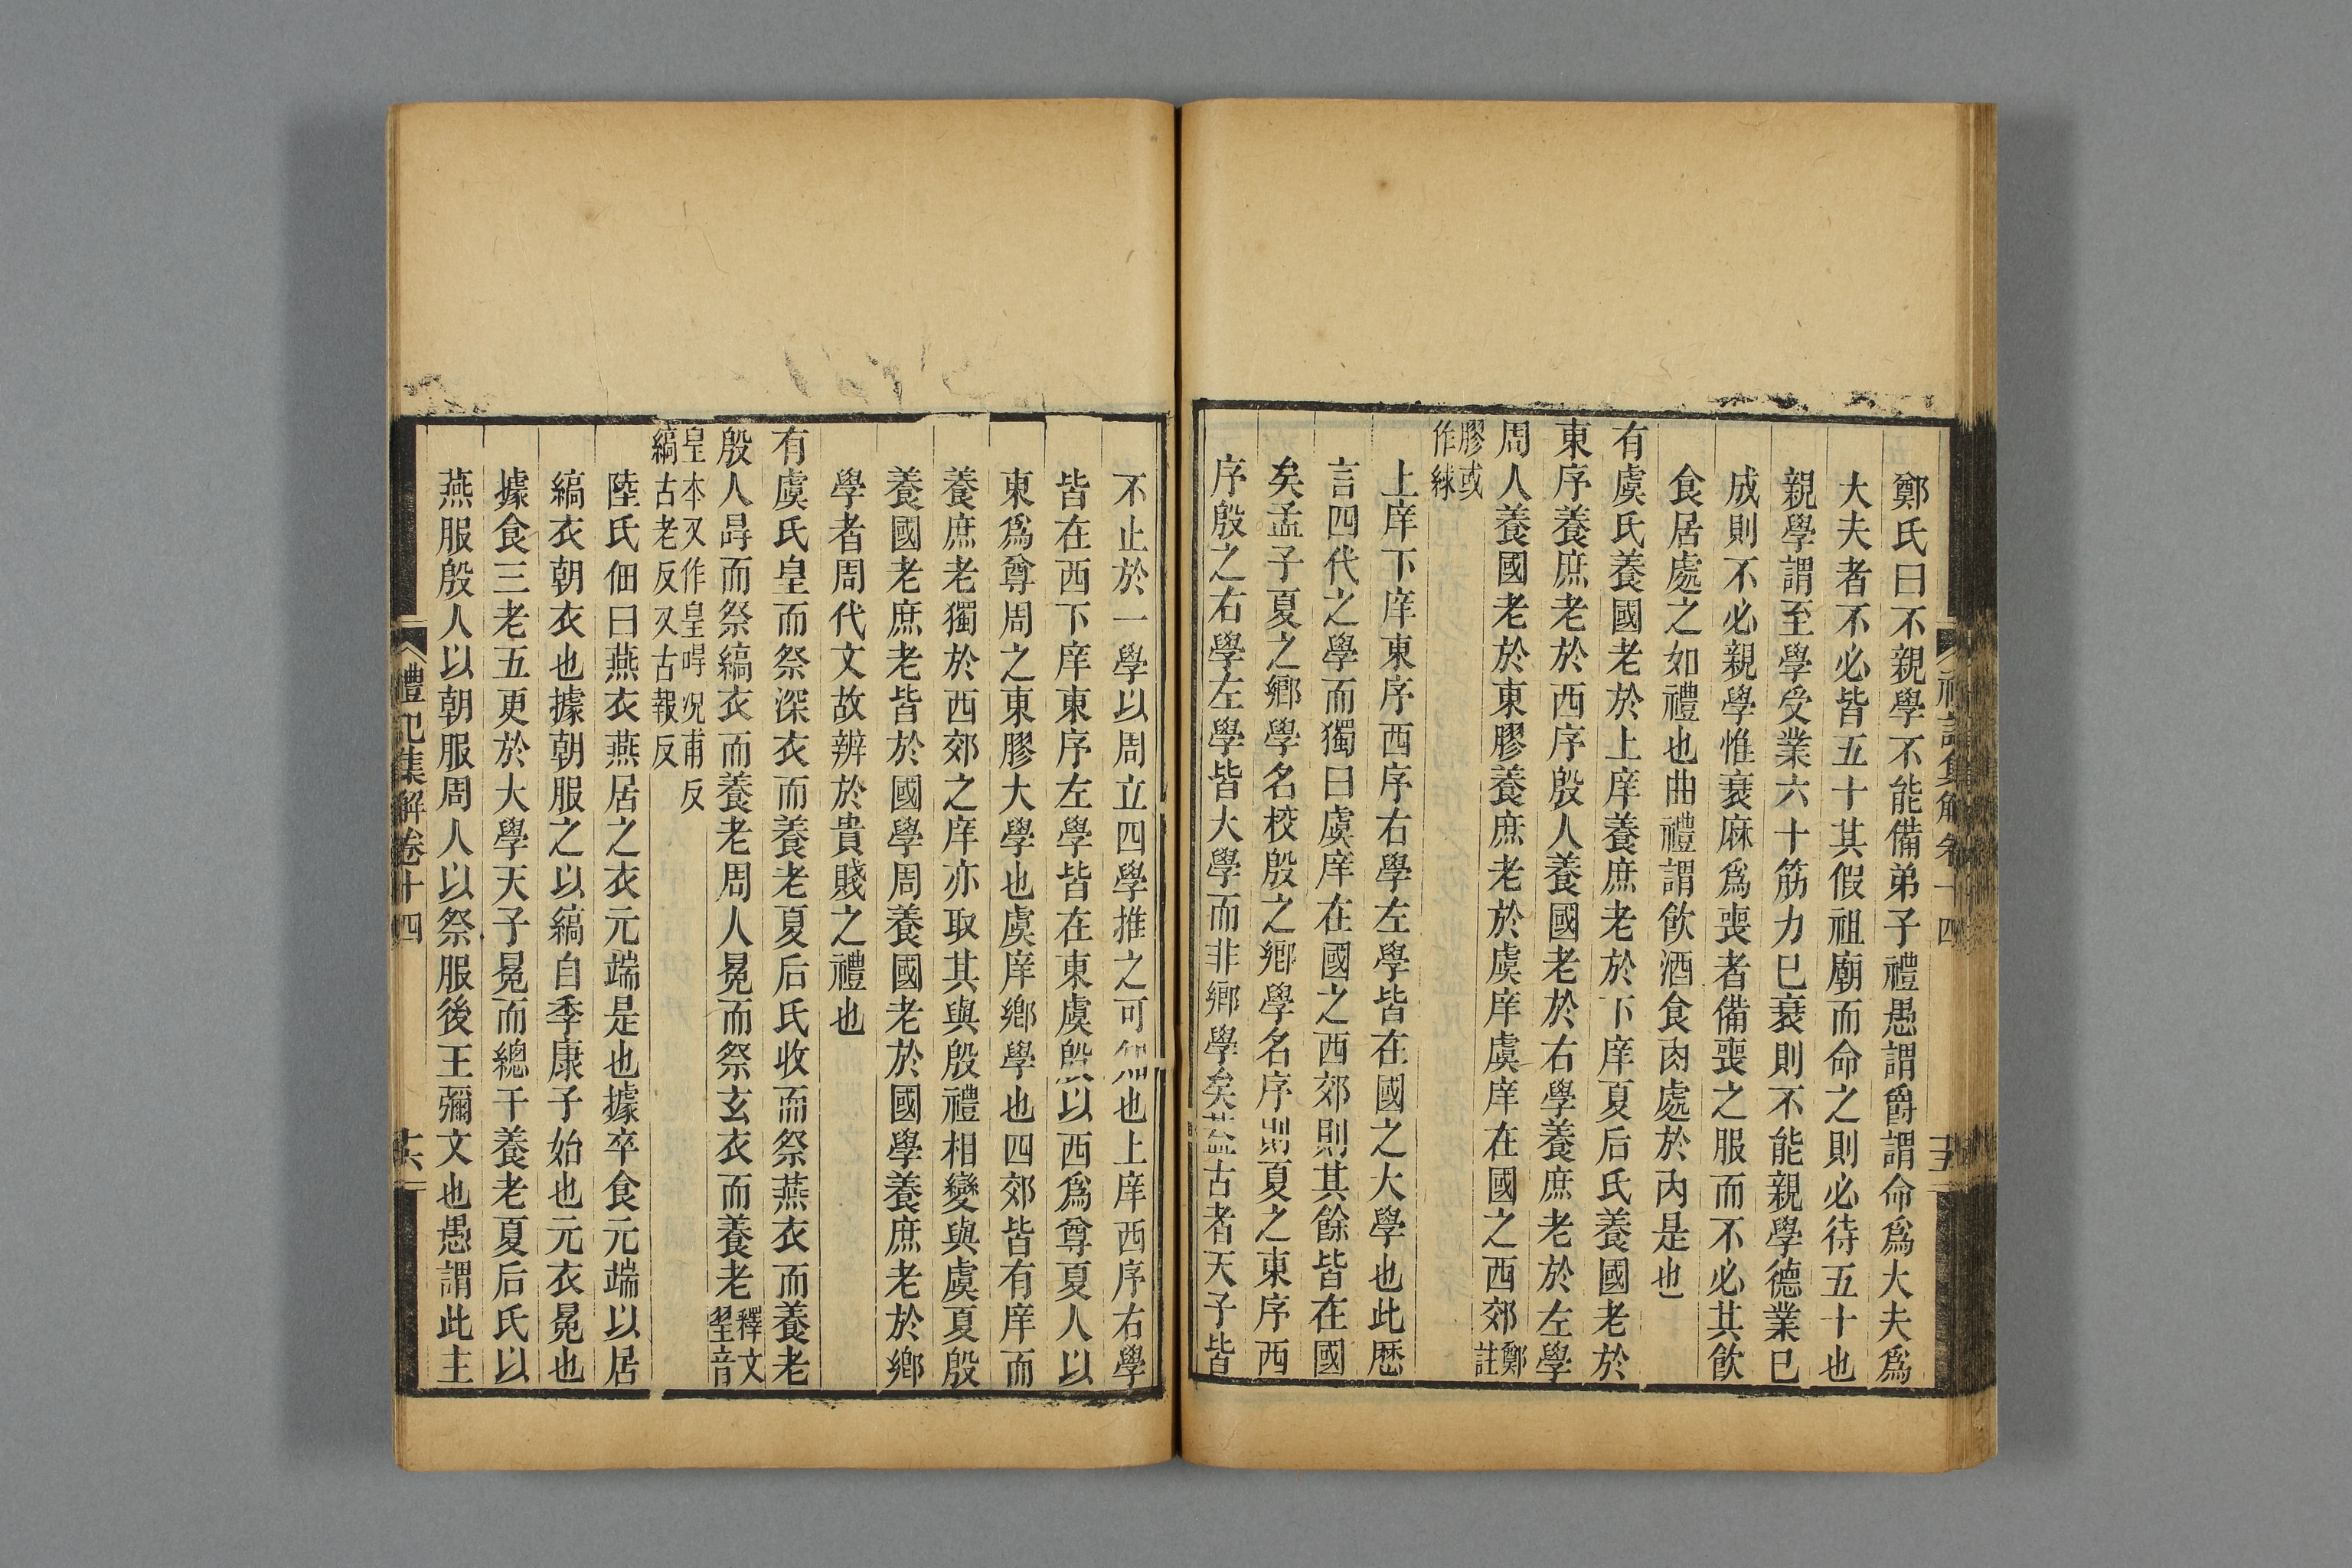 鄭氏曰不親學不能備弟子禮愚謂爵謂命爲大夫爲
大夫者不必皆五十其假祖廟而命之則必待五十也
親學謂至學受業六十筋力已衰則不能親學德業已
成則不必親學惟衰麻爲喪者備喪之服而不必其飲
食居處之如禮也曲禮謂飲酒食肉處於內是也
有虞氏養國老於上庠養庶老於下庠夏后氏養國老於
東序養庶老於西序殷人養國老於右學養庶老於左學
周人養國老於東膠養庶老於虞庠虞庠在國之西郊鄭註
膠或作綠
上庠下庠東序西序右學左學皆在國之大學也此歷
言四代之學而獨曰虞庠在國之西郊則其餘皆在國
矣孟子夏之鄉學名校殷之鄉學名序則夏之東序西
序殷之右學左學皆大學而非鄉學矣葢古者天子皆
禮記集解卷十四
不止於一學以周立四學推之可知也上庠西序右學
皆在西下庠東序左學皆在東虞殷以西爲尊夏人以
東爲尊周之東膠大學也虞庠鄉學也四郊皆有庠而
養庶老獨於西郊之庠亦取其與殷禮相變與虞夏殷
養國老庶老皆於國學周養國老於國學養庶老於鄉
學者周代文故辨於貴賤之禮也
有虞氏皇而祭深衣而養老夏后氏收而祭燕衣而養老
殷人冔而祭縞衣而養老周人冕而祭玄衣而養老釋文䍿音
皇本又作皇冔況甫反縞古老反又古報反
陸氏佃曰燕衣燕居之衣元端是也據卒食元端以居
縞衣朝衣也據朝服之以縞自季康子始也元衣冕也
據食三老五更於大學天子冕而總干養老夏后氏以
燕服殷人以朝服周人以祭服後王彌文也愚謂此主
禮記集解卷十四
十六